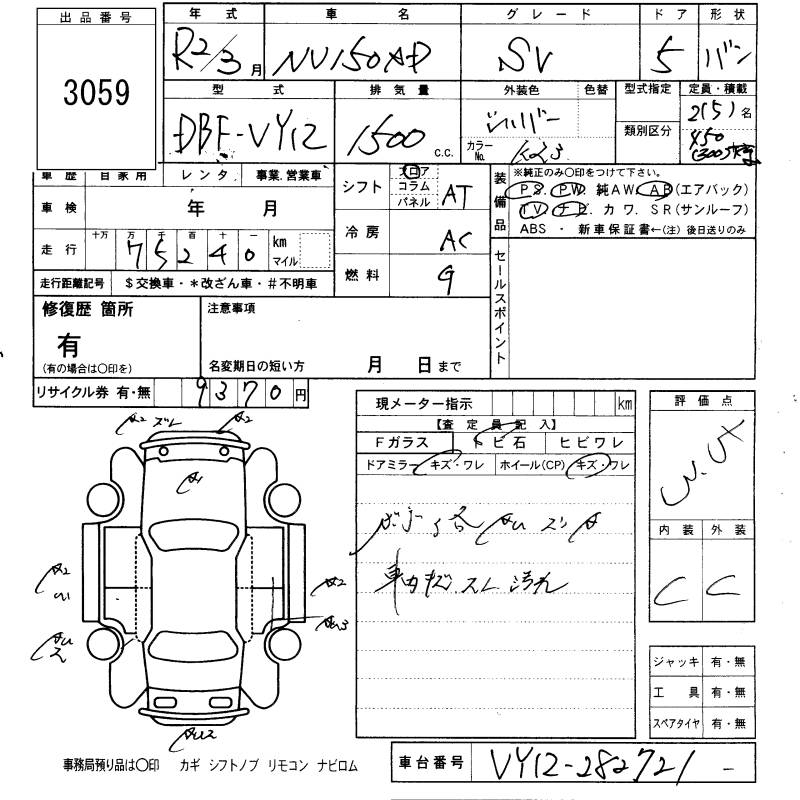 出品番号
3059
年式 車名 グレード ドア 形状
R2/3月 NV150AD SV 5 バン
型式 排気量 外装色 色替 型式指定 定員・積載
DBF-VY12 1500 c.c. シルバー 2(5)名
類別区分 450
カラーNo. K23
車歴 自家用 レンタ 事業.営業車
車検 年 月
走行 十万 万 千 百 十 一
75240 km マイル
走行距離記号 $交換車・*改ざん車・#不明車
シフト フロア コラム パネル AT
冷房 AC
燃料 G
装備品 ※純正のみ〇印をつけて下さい。
PS. PW. 純AW. AB(エアバック)
TV. ナビ. カワ. SR(サンルーフ)
ABS ・ 新車保証書←(注)後日送りのみ
セールスポイント
修復歴 箇所
有
(有の場合は〇印を)
注意事項
名変期日の短い方 月 日まで
リサイクル券 有・無 9370円
現メーター指示 km
【査定員記入】
Fガラス トビ石 ヒビワレ
ドアミラー キズ・ワレ ホイール(CP) キズ・ワレ
車内キズ.スレ 汚れ
A2 スレ A2
A1
A2
A2
U2
評価点
内装 外装
C C
ジャッキ 有・無
工具 有・無
スペアタイヤ 有・無
事務局預り品は〇印 カギ シフトノブ リモコン ナビロム
車台番号 VY12-282721 -